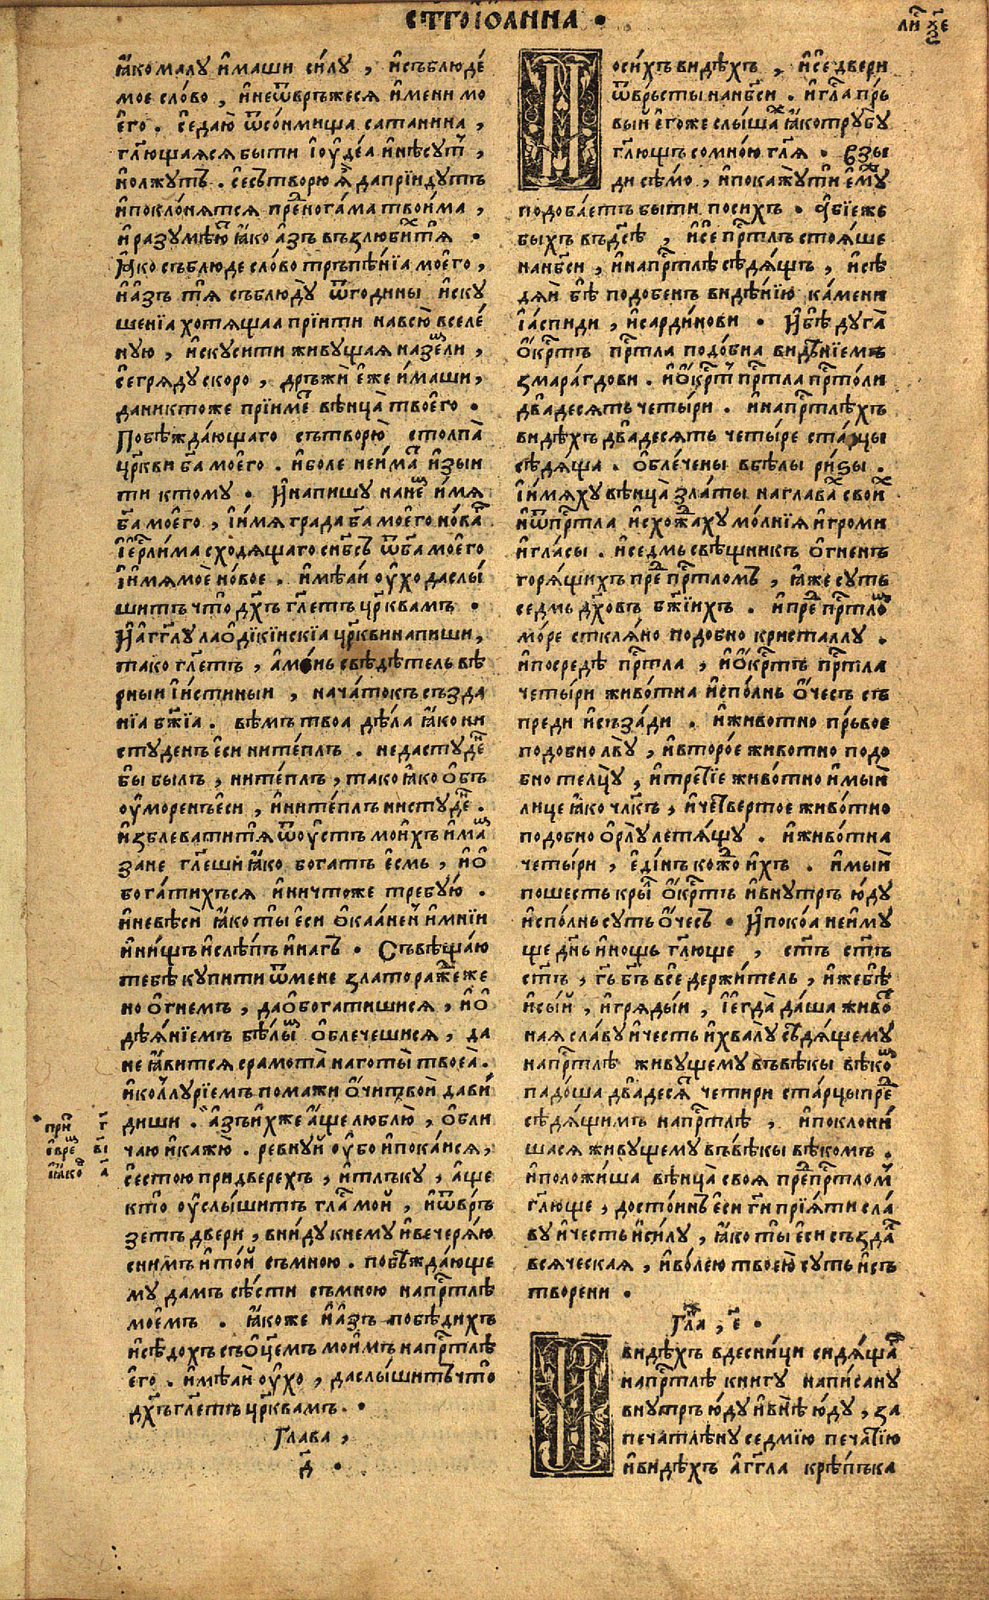 ст҃го іѡанна •
ли҃ ѯ҃е
ꙗ҆комалу и҆маши си́лу , и҆съблюде́
мое сло́во , и҆неѿвръжеся и҆мени мо
е҆го . се даю̀ ѿсо́нмища сатанина ,
гл҃ющаяся быти і҆оу҆де́а и҆нѣсут҇ ,
нолжутъ . се сътворю ѧ̀ дапрїидутъ
и҆покло́нятся пре҇ногама твои́ма ,
и҆разумѣю҇ ꙗ҆ко а҆зъ възлюби҇тѧ •
Ꙗ҆ко съблюде сло́во тръпѣ́нїа моего̀ ,
и҆азъ тѧ съблюду̀ ѿгодины и҆ску
шенїа хотящаа прїити навсю̀ вселе́
ную , и҆скусити живущая назе҇ли ,
се гряду скоро , дръжѝ е҆же и҆маши ,
даниктоже прїиме҇ вѣнца̀ твоего̀ •
Побѣжда́ющаго сътворю̀ столпа̀
цр҃кви бг҃а моего̀ . и҆боле неи҆ма҇ и҆зыи
ти ктому • И҆напишу нане҇ и҆мя
бг҃а мое҆го , і҆и҆мя града бг҃а моего̀ но́ва҇
і҆ер҃лима сходящаго снб҃съ ѿбг҃а моего̀
і҆и҆мя моѐ но́вое . и҆мѣаи оу҆хо даслы́
шитъ что̀ дх҃ъ гл҃етъ цр҃квамъ •
И҆а҆гг҃лу лаѻ҆дїкїискїа цр҃кви напиши ,
тако гл҃етъ , а҆ми́нь свѣдѣтель вѣ
рныи і҆и́стинныи , нача́токъ създа
нїа бж҃їа . вѣмъ твоа дѣ́ла ꙗ҆ко ни
студенъ е҆си ните́плъ . недастуде҇
бы былъ , ните́плъ , тако ꙗ҆ко ѻ҆бъ
оу҆моренъ е҆си , и҆ните́плъ нистуде҇ .
и҆зблеватитѧ ѿоу҆стъ мои́хъ и҆ма҇
зане гл҃еши ꙗ҆ко богатъ е҆смь , и҆ѻ҆
бога́тихъся и҆ничтоже требую̀ .
и҆невѣси ꙗ҆ко ты̀ е҆си ѻ҆каа́ней и҆мнїи
и҆ни́щъ и҆слѣпъ и҆нагъ • Съвѣща́ю
тебѣ купити ѿмене злато ражде҇же
но ѻ҆гнемъ , даѻ҆богатишися , и҆ѻ҆
дѣя́нїемъ бѣлы҇ ѻ҆блечешися , да
не ꙗ҆вится срамота̀ наготы̀ твоеа̀ .
и҆коллу́рїемъ помажи ѻ҆чи твоѝ дави́
диши . а҆зъ и҆хже а҆ще люблю̀ , ѻ҆бли
чаю и҆кажю̀ . ревну́й оу҆бо и҆пока́йся ,
се стою при дверехъ , и҆тлъку , а҆ще
кто̀ оу҆слы́шитъ гла҇ мой , и҆ѿвръ
зетъ двери , вниду кнему и҆вечеря́ю
снимъ и҆то́й съмною . побѣжда́юще
му дамъ сѣ́сти съмною напр҃тлѣ
моемъ . ꙗ҆коже и҆азъ побѣдихъ
и҆сѣдохъ съѻ҆цемъ мои́мъ напр҃тлѣ
е҆го . и҆мѣаи оу҆хо , даслы́шитъ что̀
дх҃ъ гл҃етъ цр҃квамъ . •
Глава ,
д҃ •
при҇ г҃
е҆вре҇ в҃і
и҆ꙗ҆ко҇ а҃
По си́хъ ви́дѣхъ , и҆се двери
ѿвръсты нанб҃си . и҆гла҇ пръ
выи е҆гоже слы́ша҇ ꙗ҆ко трубу
гл҃ющъ со мною гл҃я • взы
ди сѣ́мо , и҆покажути е҆му҇
подобаетъ быти посихъ • а҆бїе же
быхъ въдс҃ѣ , и҆се пр҃тлъ стоя́ше
нанб҃си , и҆напр҃тлѣ сѣдя́щъ , и҆сѣ
дяи бѣ̀ подобенъ видѣ́нїю ка́мени
і҆а́спиди , и҆сарди́нови • И҆бѣ̀ дуга̀
ѻ҆кр҇тъ пр҃тла подо́бна видѣнїемъ
змара́гдови . и҆ѻ҆кр҇тъ пр҃тла пр҃то́ли
два́десять четы́ри . и҆напр҃тлѣхъ
ви́дѣхъ два́десять четы́ре ста́рцы
сѣдя́ща . ѻ҆блече́ны в бѣлы ри́зы .
і҆и҆мя́ху вѣнца̀ зла́ты наглава҇ свои҇
и҆ѿпр҃тла и҆схожда҇ху мо́лнїя и҆громи
и҆гла́сы . и҆седмь свѣщникъ ѻ҆гненъ
горя́щихъ пре҇ пр҃тломъ , ꙗ҆же суть
седмь дх҃овъ бж҃їихъ . и҆пре҇ пр҃тло҇
мо́ре сткля́но подобно кристаллу .
и҆посредѣ̀ пр҃тла , и҆ѻ҆кр҇тъ пр҃тла
четы́ри живо́тна и҆спо́лнь ѻ҆че́съ съ
преди и҆съза́ди . и҆живо́тно пръвое
подобно льву̀ , и҆второ́е живо́тно подо
бно телцу̀ , и҆тре҇тїе живо́тно и҆мы́й
лице ꙗ҆ко чл҃къ , и҆че҇твертое живо́тно
подобно ѻ҆рлу̀ летя́щу . и҆живо́тна
четы́ри , е҆ди́нъ кожо҇ и҆хъ . и҆мый
по шесть кры҇ ѻ҆кр҇тъ и҆внутръ ю҆ду
и҆спо́лнь суть ѻ҆чесъ • И҆поко́а неи́му
ще дн҃ь и҆нощь гл҃юще , ст҃ъ ст҃ъ
ст҃ъ , гь҃ бг҃ъ все́держи́тель , и҆жебѣ̀
и҆сы́й , и҆гряды́и , і҆егда̀ да́ша живо҇
ная сла́ву и҆че́сть и҆хвалу сѣдя́щему
напр҃тлѣ живущему въвѣ́кы вѣко҇
падо́ша двадеся҇ четири ста́рцы пре҇
сѣдя́щимъ напр҃тлѣ , и҆поклони́
шася живущему въвѣ́кы вѣкомъ .
и҆положи́ша вѣнца̀ своя пре҇пр҃тлом҇
гл҃юще , досто́инъ е҆си гн҃и прїя́ти сла́
ву и҆че́сть и҆си́лу , ꙗ҆ко ты̀ е҆си създа҇
вся́ческая , и҆во́лею твоею̀ суть и҆съ
творени •
Гл҃а , е҃ •
И видѣхъ вдесни́ци сидя́ща҇
напр҃тлѣ книгу напи́сану
внутръ ю҆ду и҆внѣ̀ ю҆ду , за
печатлѣну седмїю печа҇тїю
и҆ви́дѣхъ а҆гг҃ла крѣ́пъка